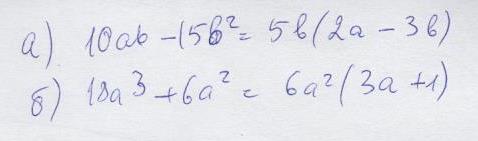 а) 10ab - 15b² = 5b(2a - 3b)
б) 18a³ + 6a² = 6a²(3a + 1)